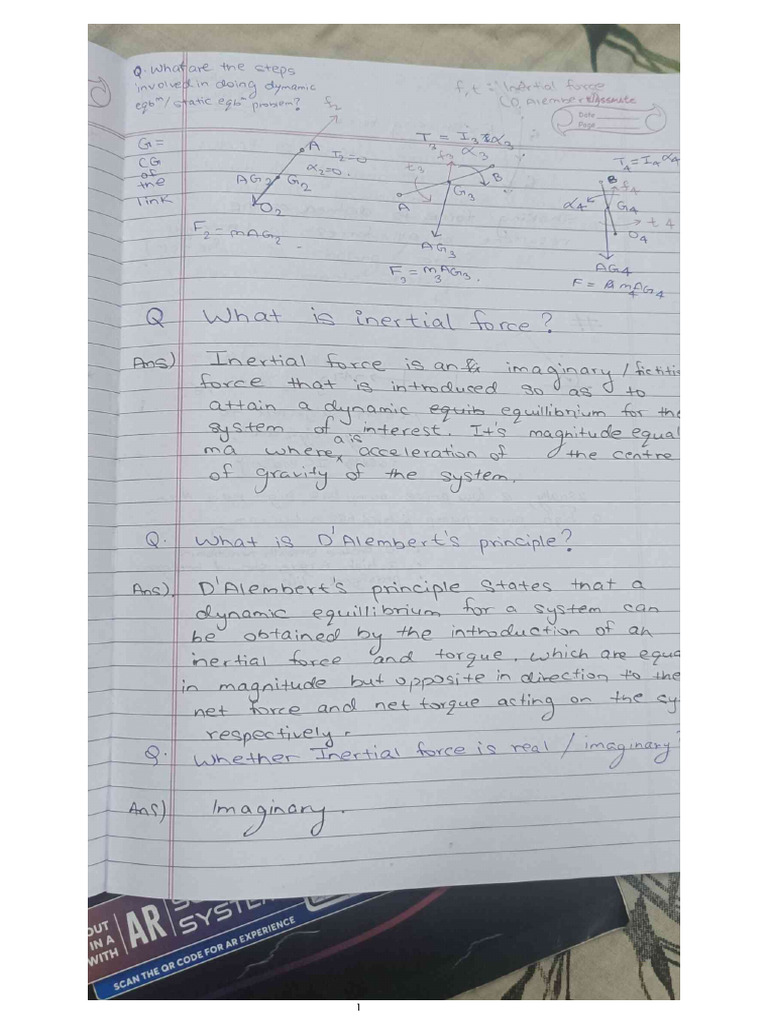 Q. What are the steps
involved in doing dynamic
eqbm / static eqbm problem?
f, t :: Inertial force
Date
Page
G =
CG
of
the
link
f2
A
I2=0
α2=0.
AG2
G2
O2
F2 - mAG2
T3 = I3 α3
α3
f3
t3
B
A
G3
AG3
F3 = m3AG3.
T4 = I4 α4
B
f4
α4
G4
t4
O4
AG4
F = m4AG4
Q What is inertial force?
Ans) Inertial force is an imaginary / fictiti
force that is introduced so as to
attain a dynamic equib equillibrium for the
system of interest. It's magnitude equal
ma where a is acceleration of the centre
of gravity of the system.
Q. What is D'Alembert's principle?
Ans). D'Alembert's principle states that a
dynamic equillibrium for a system can
be obtained by the introduction of an
inertial force and torque, which are equa
in magnitude but opposite in direction to the
net force and net torque acting on the sy
respectively.
Q. Whether Inertial force is real / imaginary?
Ans) Imaginary.
OUT
IN A
WITH
AR
SYSTE
SCAN THE QR CODE FOR AR EXPERIENCE
1